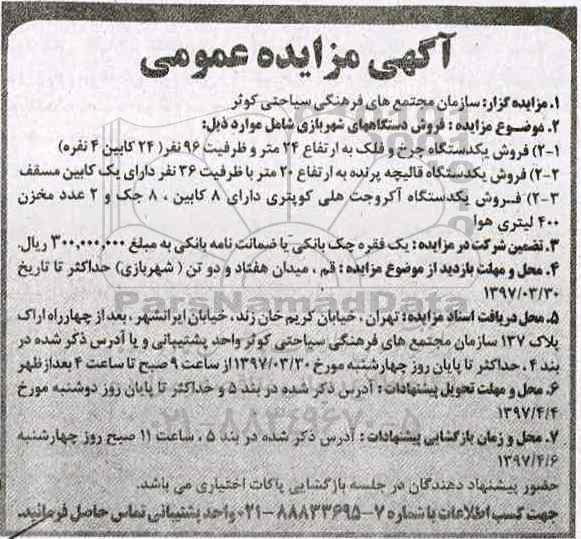 آگهی مزایده عمومی
۱. مزایده گزار: سازمان مجتمع های فرهنگی سیاحتی کوثر
۲. موضوع مزایده : فروش دستگاههای شهربازی شامل موارد ذیل:
۲-۱) فروش یکدستگاه چرخ و فلک به ارتفاع ۲۴ متر و ظرفیت ۹۶ نفر( ۲۴ کابین ۴ نفره)
۲-۲) فروش یکدستگاه قالیچه پرنده به ارتفاع ۲۰ متر با ظرفیت ۳۶ نفر دارای یک کابین مسقف
۲-۳) فروش یکدستگاه آکروجت هلی کوپتری دارای ۸ کابین ، ۸ جک و ۲ عدد مخزن
۴۰۰ لیتری هوا
۳. تضمین شرکت در مزایده : یک فقره چک بانکی یا ضمانت نامه بانکی به مبلغ ۳۰۰,۰۰۰,۰۰۰ ریال.
۴. محل و مهلت بازدید از موضوع مزایده : قم ، میدان هفتاد و دو تن ( شهربازی) حداکثر تا تاریخ
۱۳۹۷/۰۳/۳۰
۵. محل دریافت اسناد مزایده : تهران ، خیابان کریم خان زند، خیابان ایرانشهر ، بعد از چهارراه اراک
پلاک ۱۳۷ سازمان مجتمع های فرهنگی سیاحتی کوثر واحد پشتیبانی و یا آدرس ذکر شده در
بند ۴ ، حداکثر تا پایان روز چهارشنبه مورخ ۱۳۹۷/۰۳/۳۰ از ساعت ۹ صبح تا ساعت ۴ بعدازظهر
۶. محل و مهلت تحویل پیشنهادات : آدرس ذکر شده در بند ۵ و حداکثر تا پایان روز دوشنبه مورخ
۱۳۹۷/۴/۴
۷. محل و زمان بازگشایی پیشنهادات : آدرس ذکر شده در بند ۵ ، ساعت ۱۱ صبح روز چهارشنبه
۱۳۹۷/۴/۶
حضور پیشنهاد دهندگان در جلسه بازگشایی پاکات اختیاری می باشد.
جهت کسب اطلاعات با شماره ۷-۸۸۸۳۳۶۹۵-۰۲۱ واحد پشتیبانی تماس حاصل فرمائید.
ParsNamadData
۰۲۱-۸۸۳۴۹۶۷۰-۵